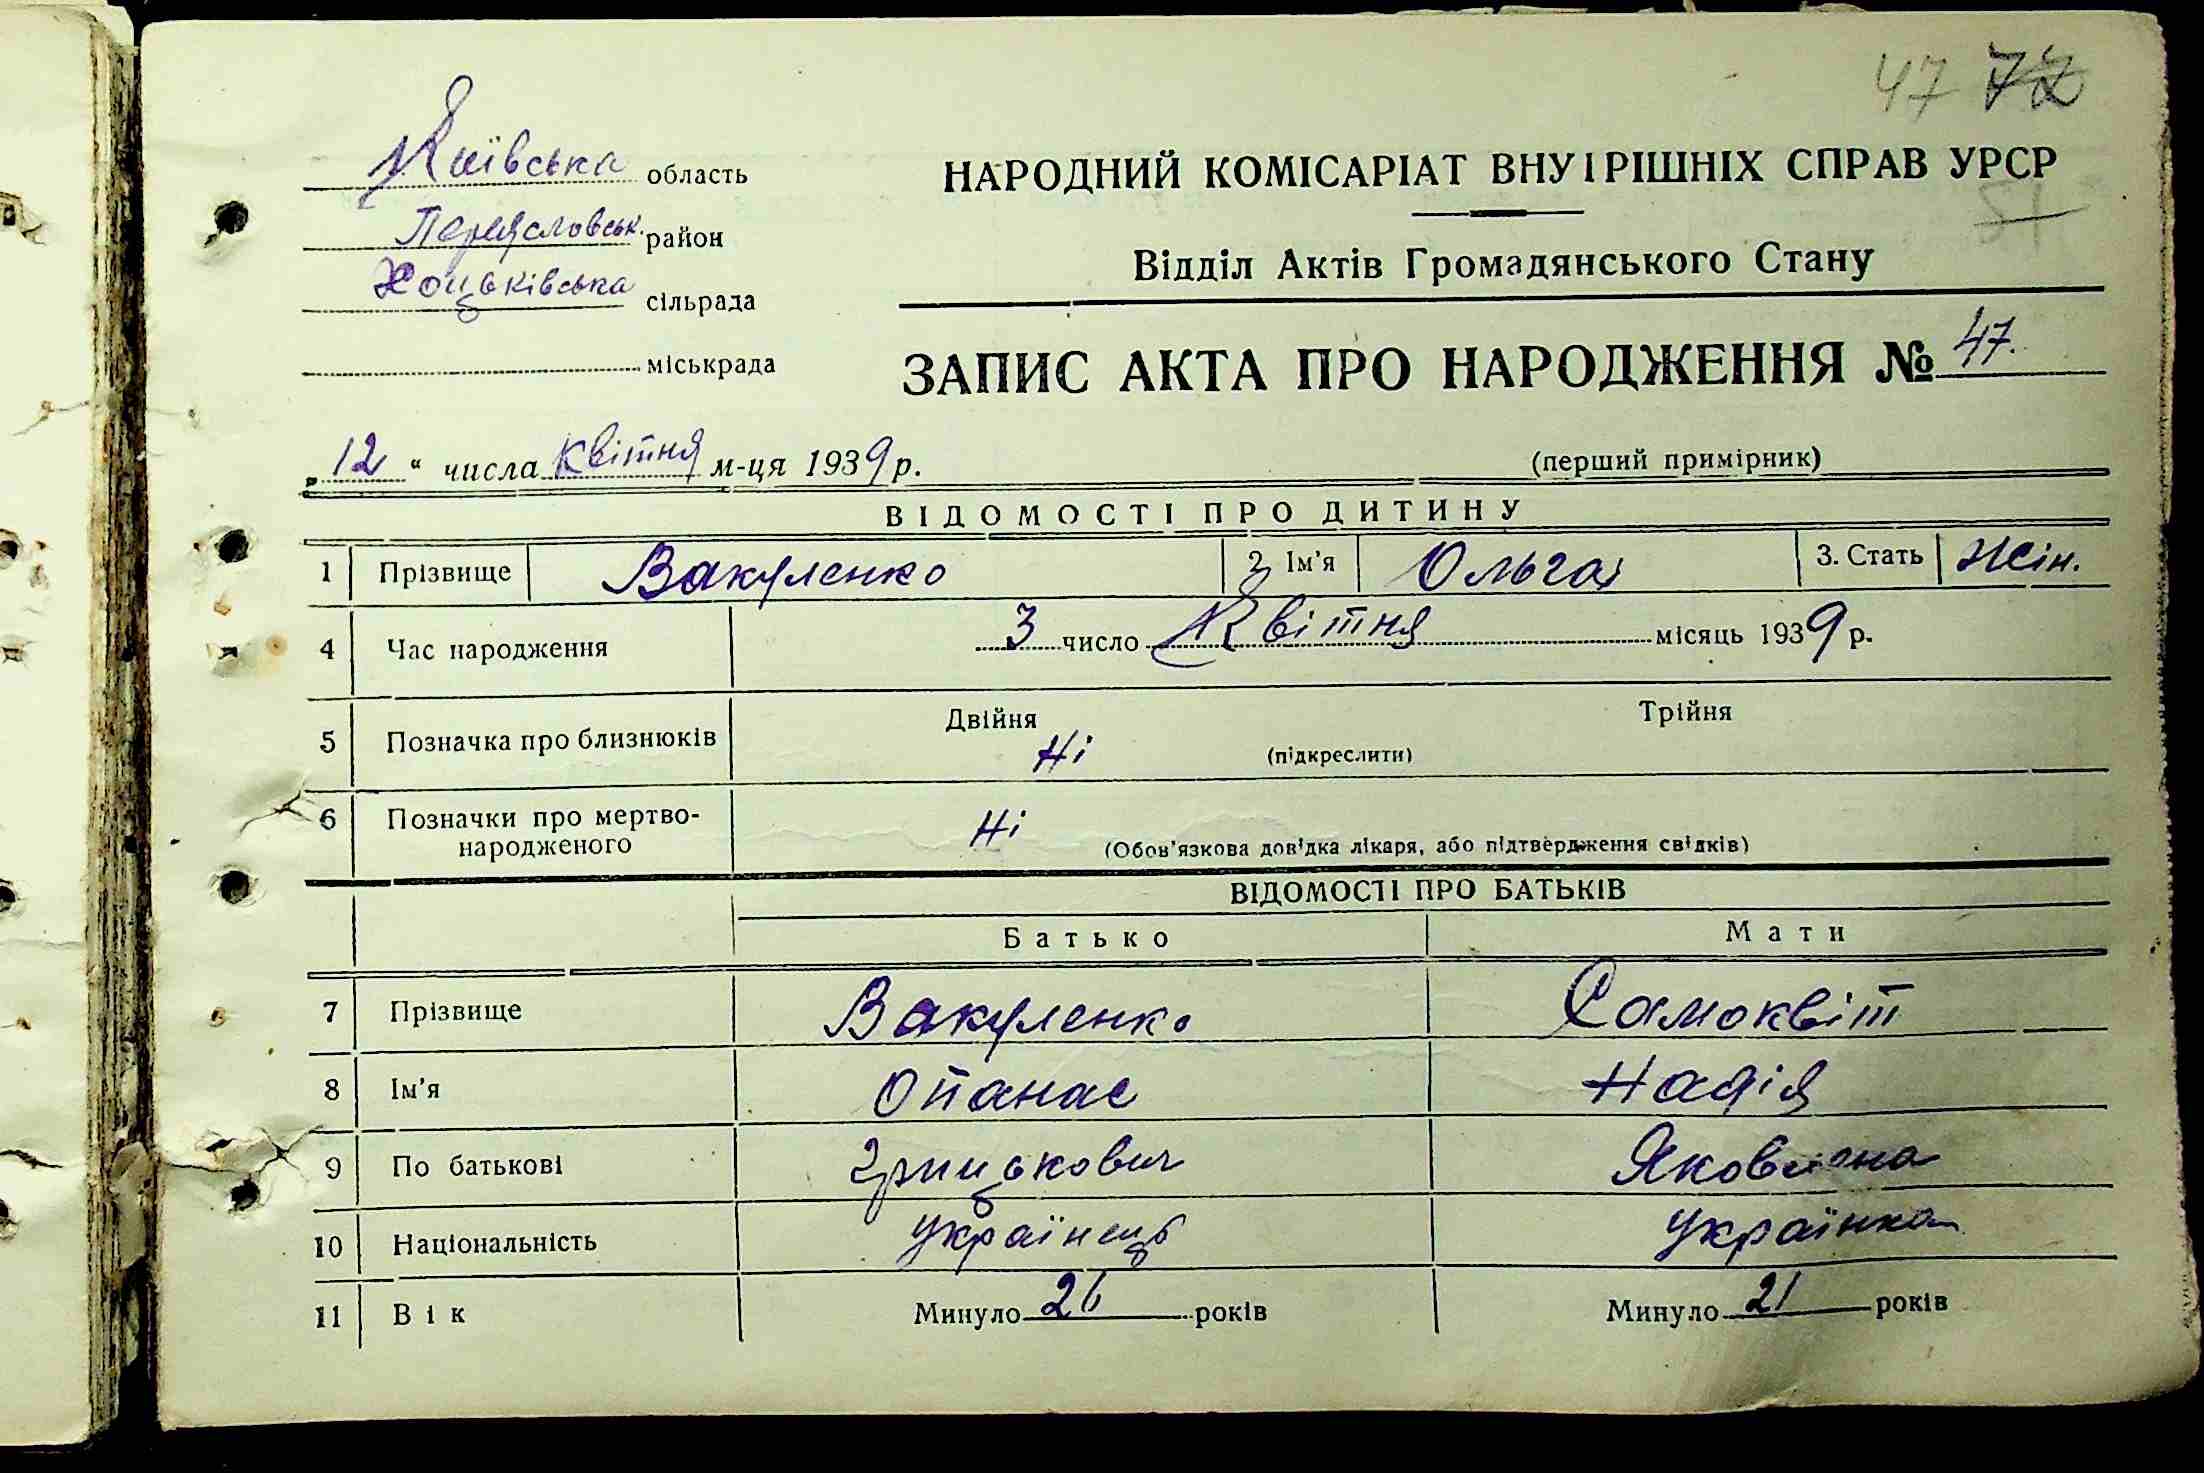 47 72
Київська область
НАРОДНИЙ КОМІСАРІАТ ВНУТРІШНІХ СПРАВ УРСР
51
Переясловськ. район
Відділ Актів Громадянського Стану
Хоцьківська сільрада
міськрада
ЗАПИС АКТА ПРО НАРОДЖЕННЯ № 47.
„12“ числа квітня м-ця 1939 р.
(перший примірник)
ВІДОМОСТІ ПРО ДИТИНУ
1 Прізвище Вакуленко 2. Ім'я Ольга 3. Стать Жін.
4 Час народження 3 число Квітня місяць 1939 р.
5 Позначка про близнюків Двійня Трійня
Ні (підкреслити)
6 Позначки про мертво-
народженого Ні (Обов'язкова довідка лікаря, або підтвердження свідків)
ВІДОМОСТІ ПРО БАТЬКІВ
Батько Мати
7 Прізвище Вакуленко Самоквіт
8 Ім'я Опанас Надія
9 По батькові Грицькович Яковлена
10 Національність Українець Українка
11 Вік Минуло 26 років Минуло 21 років